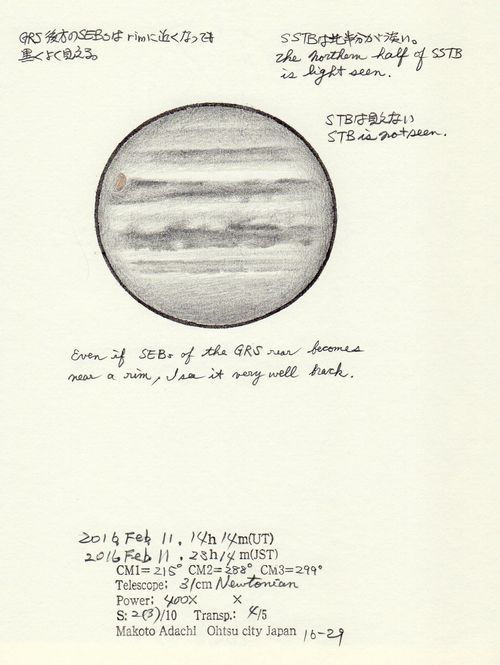 GRS 後方のSEBsは rimに近くなっても
黒くよく見える。
SSTBは北半分が淡い。
the northern half of SSTB
is light seen.
STBは見えない
STB is not seen.
Even if SEBs of the GRS rear becomes
near a rim, I see it very well back.
2016 Feb 11, 14h 14m(UT)
2016 Feb 11. 23h14 m(JST)
CM1= 215° CM2= 288° CM3= 299°
Telescope: 31cm Newtonian
Power: 400× ×
S: 2(3)/10 Transp.: 4/5
Makoto Adachi Ohtsu city Japan 16-29